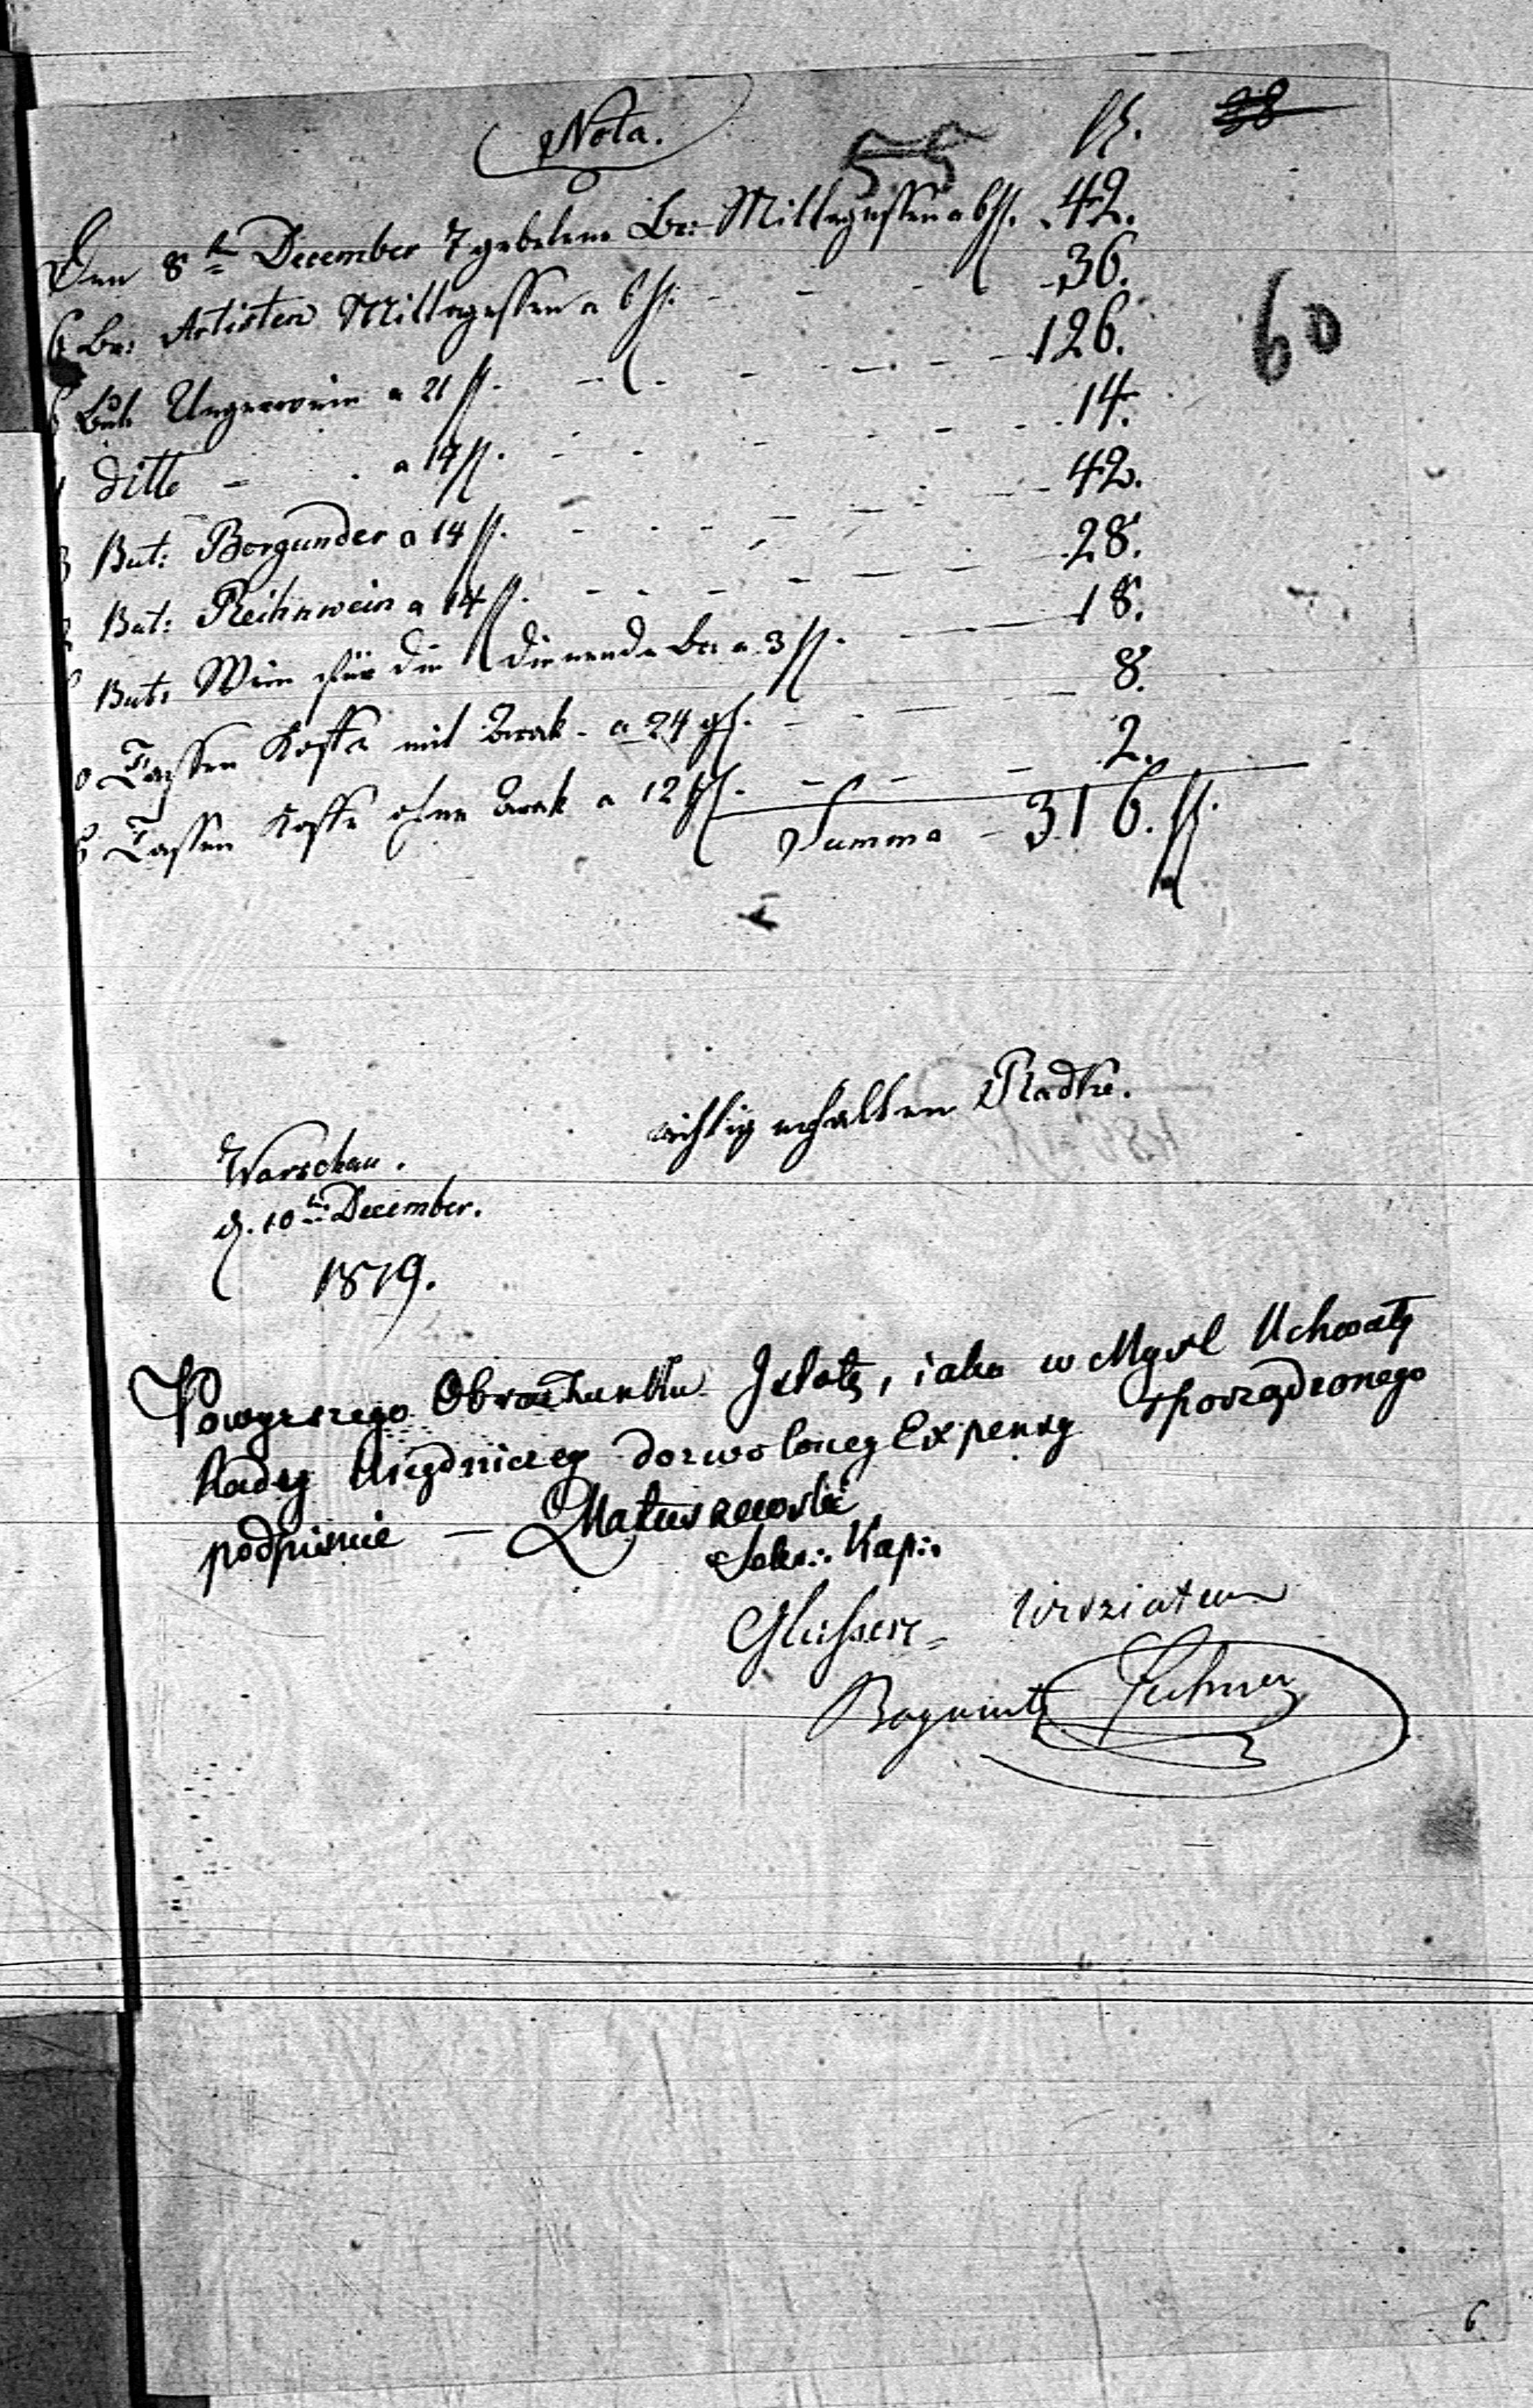 Nota.
55
fl.
38
Den 8th December 7 gebetene Br: Mittagessen a 6 fl. 42.
6 Br: Artisten Mittagessen a 6 fl. - - - 36.
60
But Ungerwein a 21 fl. - - - - 126.
1 ditto - a 14 fl. - - - - 14.
3 But: Borgunder a 14 fl. - - - - 42.
But: Reihnwein a 14 fl. - - - - 28.
But: Wein für die dienende Br: a 3 fl. - - 18.
Tassen Koffe mit Arak - a 24 gl. - - - 8.
Tassen Koffe ohne Arak a 12 gl. - - - 2.
Summa - 316. fl.
richtig erhalten Radke.
Warschau.
d. 10ten December.
1819.
Powyższego Obrachunku Istotę, iako w Myśl Uchwały
Rady Urzędniczey dozwoloney Expensy sporządzonego
podpisuie — Matuszewski
Sekr:. Kap:.
Bogumił
6